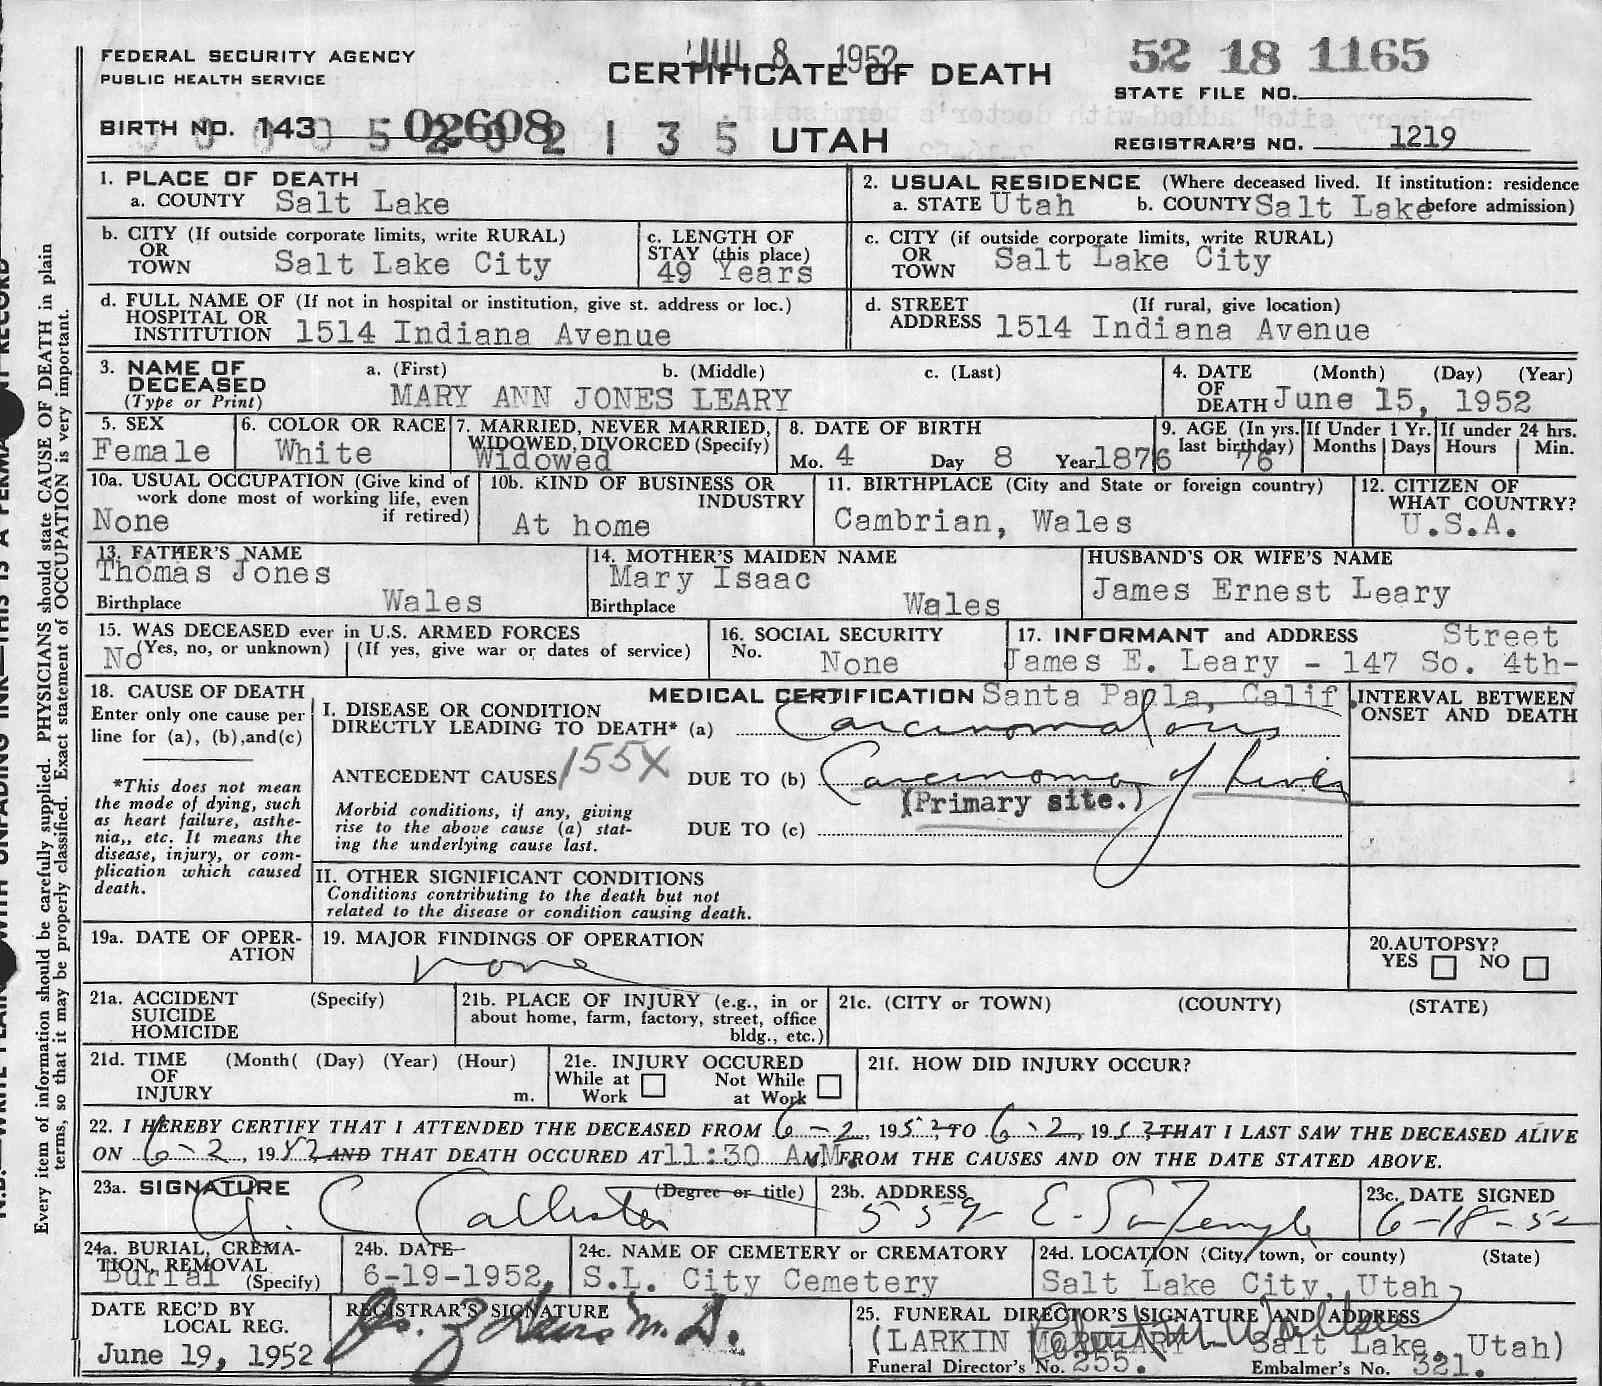 FEDERAL SECURITY AGENCY
PUBLIC HEALTH SERVICE
JUL 8 1952
CERTIFICATE OF DEATH
52 18 1165
STATE FILE NO.
BIRTH NO. 143 02608
2 1 3 5
UTAH
REGISTRAR'S NO. 1219
1. PLACE OF DEATH
a. COUNTY Salt Lake
2. USUAL RESIDENCE (Where deceased lived. If institution: residence
a. STATE Utah b. COUNTY Salt Lake before admission)
b. CITY (If outside corporate limits, write RURAL)
OR
TOWN Salt Lake City
c. LENGTH OF
STAY (this place)
49 Years
c. CITY (if outside corporate limits, write RURAL)
OR
TOWN Salt Lake City
d. FULL NAME OF (If not in hospital or institution, give st. address or loc.)
HOSPITAL OR
INSTITUTION 1514 Indiana Avenue
d. STREET (If rural, give location)
ADDRESS 1514 Indiana Avenue
3. NAME OF
DECEASED
(Type or Print)
a. (First) b. (Middle) c. (Last)
MARY ANN JONES LEARY
4. DATE (Month) (Day) (Year)
OF
DEATH June 15, 1952
5. SEX
Female
6. COLOR OR RACE
White
7. MARRIED, NEVER MARRIED,
WIDOWED, DIVORCED (Specify)
Widowed
8. DATE OF BIRTH
Mo. 4 Day 8 Year 1876
9. AGE (In yrs. last birthday)
76
If Under 1 Yr.
Months Days
If under 24 hrs.
Hours Min.
10a. USUAL OCCUPATION (Give kind of
work done most of working life, even
if retired)
None
10b. KIND OF BUSINESS OR
INDUSTRY
At home
11. BIRTHPLACE (City and State or foreign country)
Cambrian, Wales
12. CITIZEN OF
WHAT COUNTRY?
U.S.A.
13. FATHER'S NAME
Thomas Jones
Birthplace Wales
14. MOTHER'S MAIDEN NAME
Mary Isaac
Birthplace Wales
HUSBAND'S OR WIFE'S NAME
James Ernest Leary
15. WAS DECEASED ever in U.S. ARMED FORCES
(Yes, no, or unknown) (If yes, give war or dates of service)
No
16. SOCIAL SECURITY
No. None
17. INFORMANT and ADDRESS Street
James E. Leary - 147 So. 4th-
Santa Papla, Calif.
18. CAUSE OF DEATH
Enter only one cause per
line for (a), (b),and(c)
*This does not mean
the mode of dying, such
as heart failure, asthe-
nia,, etc. It means the
disease, injury, or com-
plication which caused
death.
MEDICAL CERTIFICATION
I. DISEASE OR CONDITION
DIRECTLY LEADING TO DEATH* (a) Carcinomatous
ANTECEDENT CAUSES 155X DUE TO (b) Carcinoma of Liver
(Primary site.)
Morbid conditions, if any, giving
rise to the above cause (a) stat-
ing the underlying cause last.
DUE TO (c)
INTERVAL BETWEEN
ONSET AND DEATH
II. OTHER SIGNIFICANT CONDITIONS
Conditions contributing to the death but not
related to the disease or condition causing death.
19a. DATE OF OPER-
ATION
19. MAJOR FINDINGS OF OPERATION
none
20. AUTOPSY?
YES NO
21a. ACCIDENT (Specify)
SUICIDE
HOMICIDE
21b. PLACE OF INJURY (e.g., in or
about home, farm, factory, street, office
bldg., etc.)
21c. (CITY or TOWN) (COUNTY) (STATE)
21d. TIME (Month( (Day) (Year) (Hour)
OF
INJURY m.
21e. INJURY OCCURED
While at Work Not While at Work
21f. HOW DID INJURY OCCUR?
22. I HEREBY CERTIFY THAT I ATTENDED THE DECEASED FROM 6-2, 1952, TO 6-2, 1952, THAT I LAST SAW THE DECEASED ALIVE
ON 6-2, 1952 AND THAT DEATH OCCURED AT 11:30 A.M. FROM THE CAUSES AND ON THE DATE STATED ABOVE.
23a. SIGNATURE (Degree or title)
A. C. Callister
23b. ADDRESS
559 E. So Temple
23c. DATE SIGNED
6-18-52
24a. BURIAL, CREMA-
TION, REMOVAL
(Specify)
Burial
24b. DATE
6-19-1952.
24c. NAME OF CEMETERY or CREMATORY
S.L. City Cemetery
24d. LOCATION (City, town, or county) (State)
Salt Lake City, Utah
DATE REC'D BY
LOCAL REG.
June 19, 1952
REGISTRAR'S SIGNATURE
M.D.
25. FUNERAL DIRECTOR'S SIGNATURE AND ADDRESS
(LARKIN MORTUARY - Salt Lake, Utah)
Funeral Director's No. 255. Embalmer's No. 321.
Every item of information should be carefully supplied. PHYSICIANS should state CAUSE OF DEATH in plain
terms, so that it may be properly classified. Exact statement of OCCUPATION is very important.